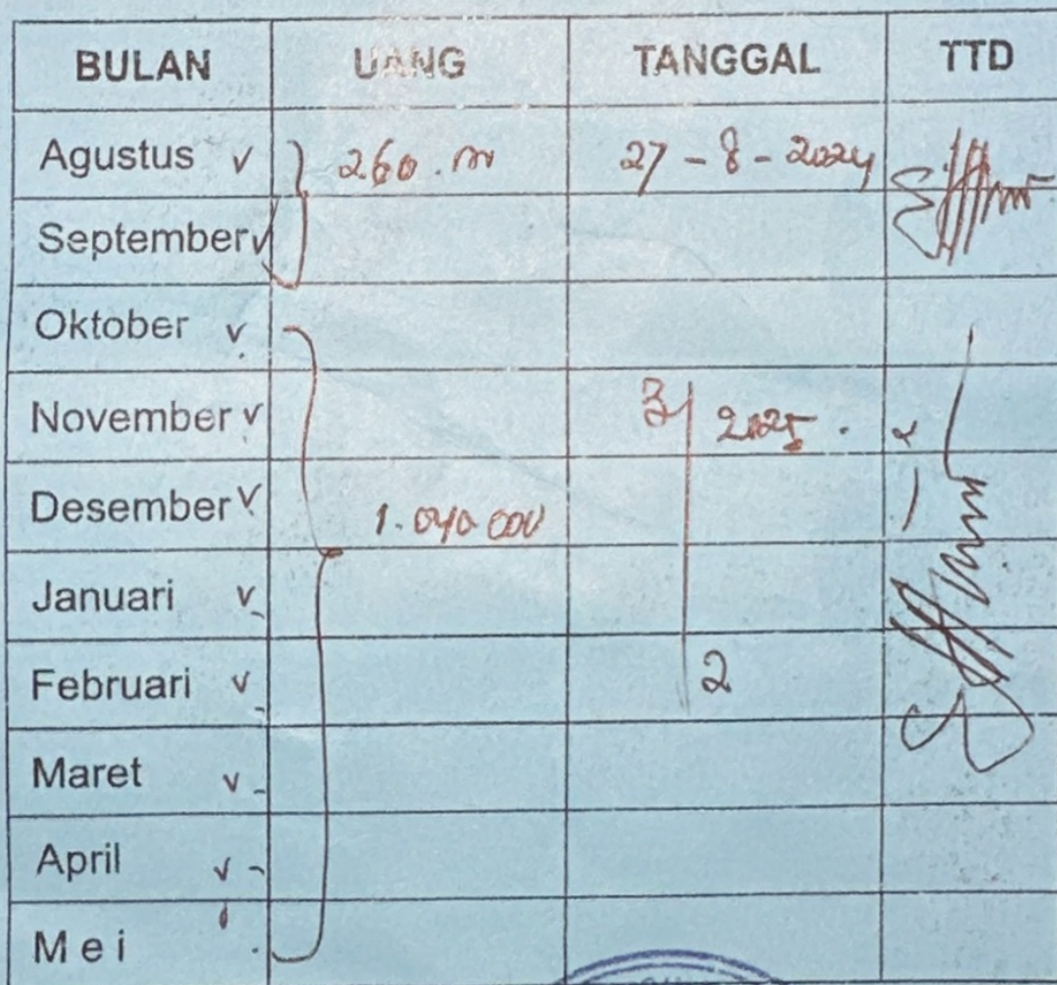 BULAN UANG TANGGAL TTD
Agustus v 260. 27-8-2024
September v
Oktober v
November v 3 2025.
Desember v 1.040.000
Januari v
Februari v 2
Maret v
April v
Mei